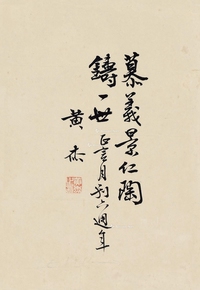 慕義景仁陶
鑄一世
正言月刊六週年
黃杰